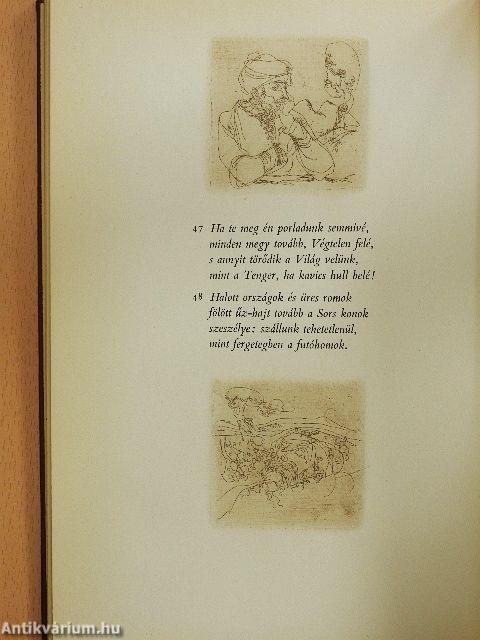 47 Ha te meg én porladunk semmivé,
minden megy tovább, Végtelen felé,
s annyit törődik a Világ velünk,
mint a Tenger, ha kavics hull belé!
48 Halott országok és üres romok
fölött űz-hajt tovább a Sors konok
szeszélye: szállunk tehetetlenül,
mint fergetegben a futóhomok.
Antikvárium.hu